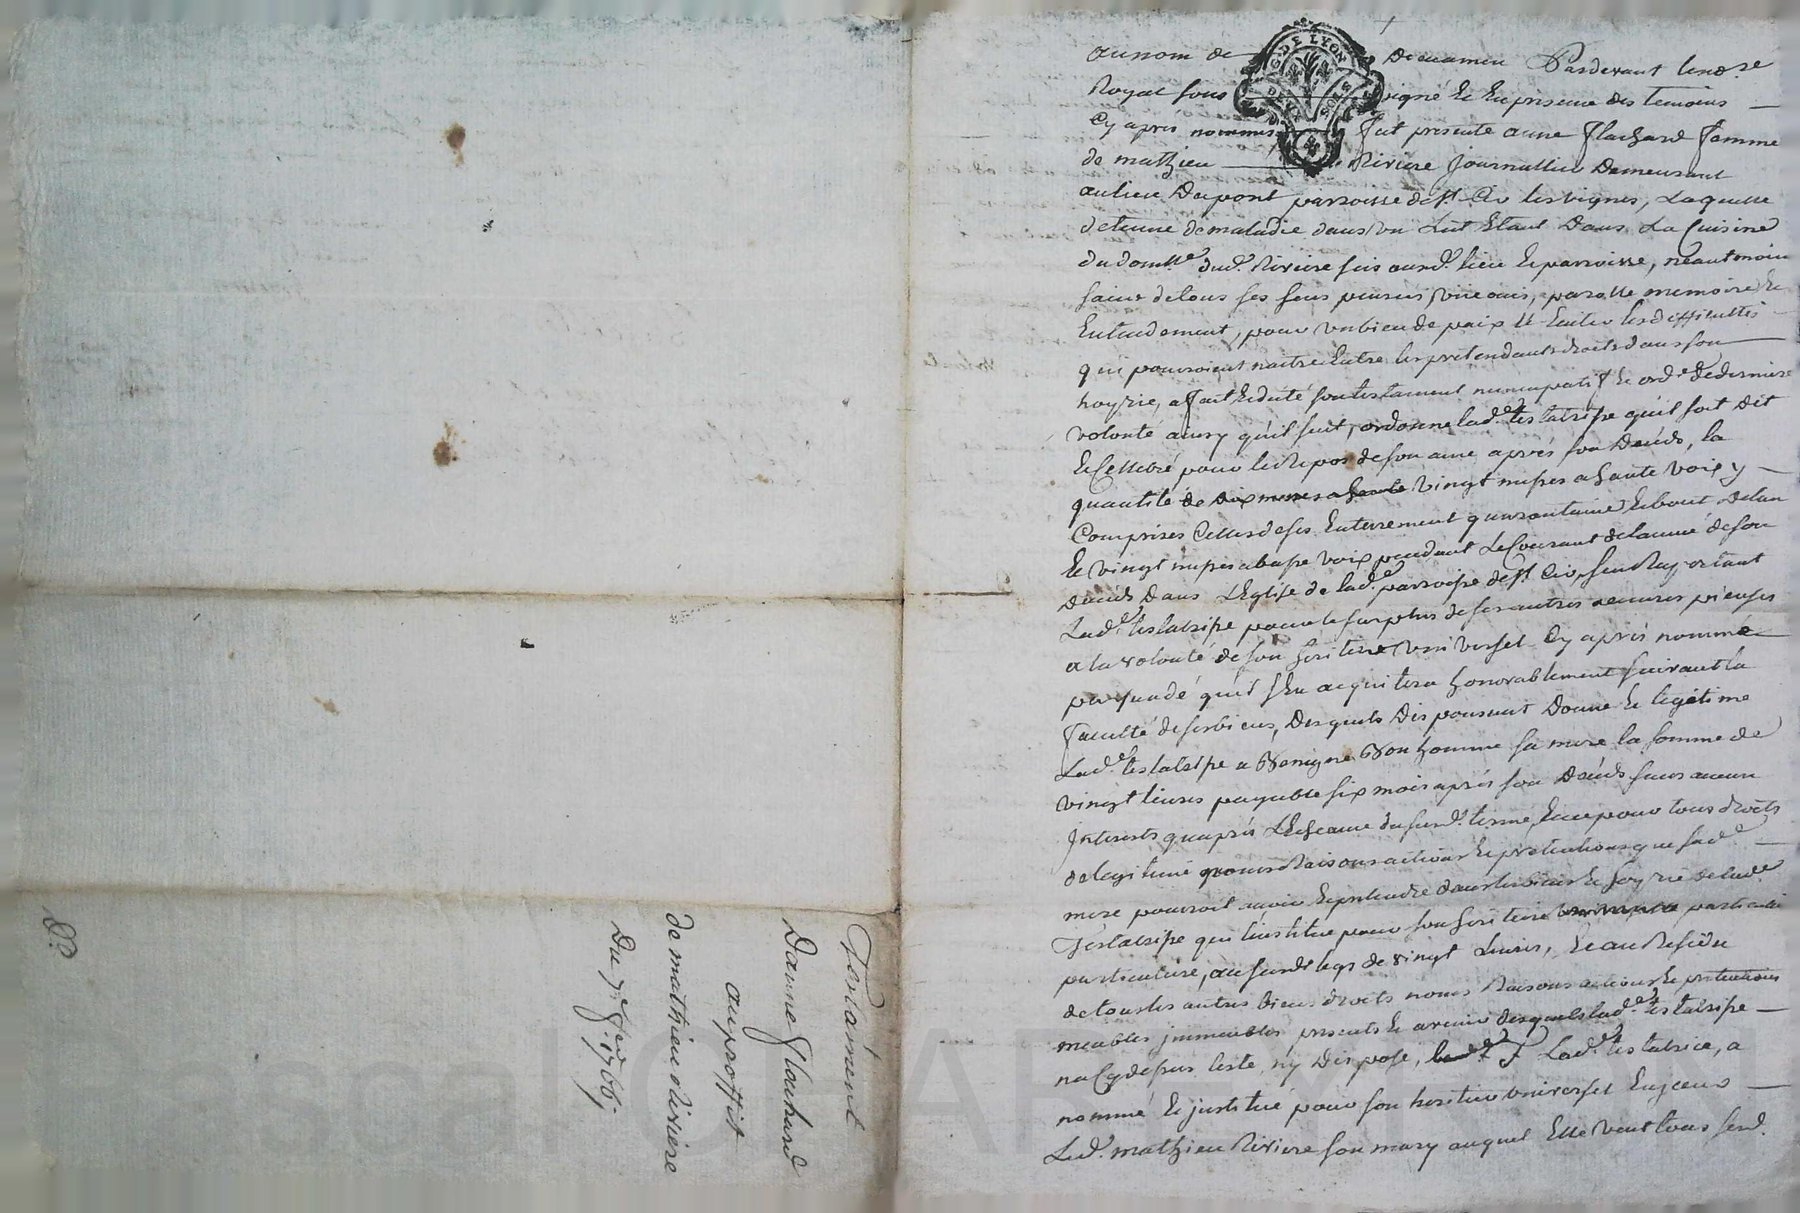 Testament
Danne flachard
au proffit
de mathieu Riviere
Du 7e fev. 1766.
Do
G. DE LYON
DEUX SOLS
au nom de Dieu amen Pardevant le no.re
Royal sous signé et en presence des temoins
Cy apres nommes fut presente anne flachard femme
de mathieu Riviere journallier Demeurant
au lieu Dupont parroisse de st Cir les vignes, Laquelle
detenue de maladie dans un Lict Etant Dans La Cuisine
du domlle dud. Riviere sis aud. lieu et parroisse, neantmoin
saine de tous ses sens veue ouis, parolle memoire et
Entendement, pour un bien de paix et Eviter les difficultés
qui pourroient naitre Entre les pretendants droits dans son
hoyrie, a fait Et dicté son testament nuncupatif et ord.e de derniere
volonté ainsy qu'il suit, ordonne lad.e testatrisse qu'il soit dit
Et Cellebré pour le Repos de son ame après son Décés, la
quantité de dix messes a haute vingt messes a haute voix y
Comprises Celles de ses Enterrement quarantaine Et bout de lan
Et vingt messes a basse voix pendant Le Courant de lannée de son
Décés Dans L'Eglise de lad.e parroisse de st Cir, sen Raportant
Lad.e testatrisse pour le surplus de ses autres oeuvres pieuses
a la volonté de son heritier universel Cy après nommé
persuadé quil sen acquitera honorablement suivant la
faculté de ses biens, Desquels Disposant Donne Et legitime
Lad.e testatrisse a Benigne Bonhomme sa mere la somme de
vingt livres payable six mois après son Décés sans aucun
Interests quaprès L'Echeance du susd. terme, Et ce pour tous droits
de legitime noms Raisons actions Et pretentions que sad.e
mere pourroit avoir Et pretendre dans les biens Et hoyrie de lad.e
Testatrisse qui l'institue pour son heritiere particuliere
particuliere, au susdit legs de vingt Livres, Et au Residu
de tous les autres biens droits noms Raisons actions Et pretentions
meubles immeubles presents Et avenir desquels lad.e testatrisse
na Cy dessus testé, ny Disposé, Lad.e testatrice, a
nommé Et institué pour son heritier universel Engeneral
Led. mathieu Riviere son mary auquel Elle veut tous sesd.